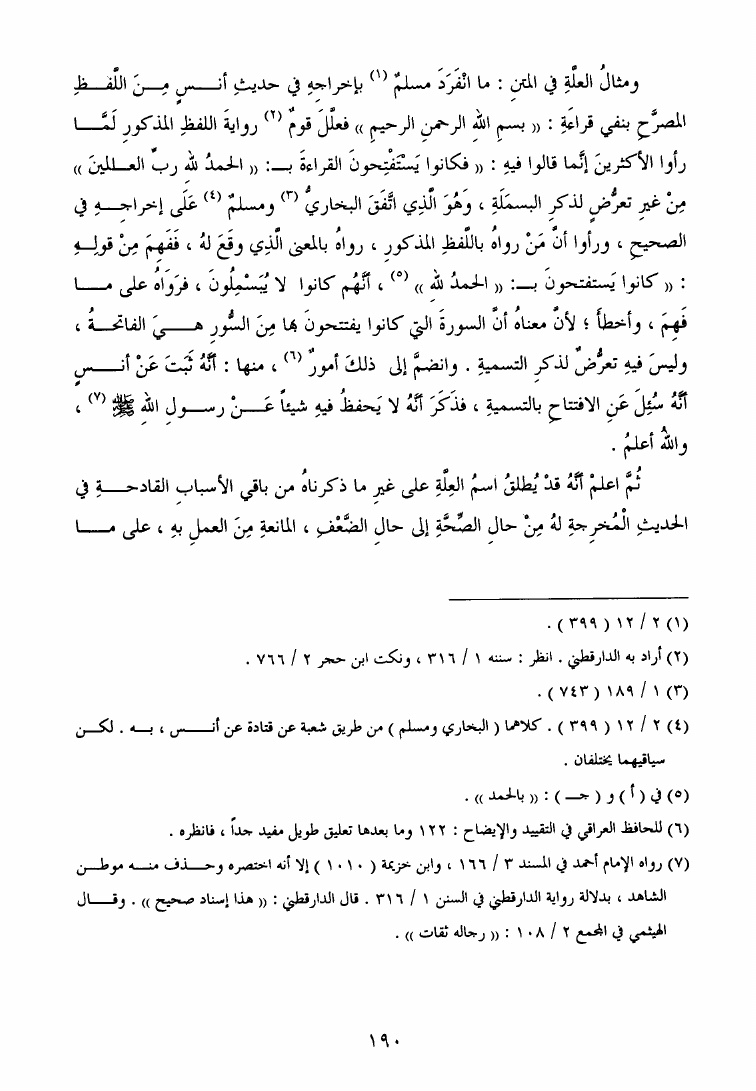 ومثالُ العلَّةِ في المتن : ما انْفَرَدَ مسلمٌ (١) بإخراجِهِ في حديثِ أنـــسٍ مِـــنَ اللَّفـــظِ
المصرَّحِ بنفي قراءَةِ : (( بسمِ اللهِ الرحمنِ الرحيمِ )) فعلَّلَ قومٌ (٢) روايةَ اللفظِ المذكورِ لَمَّـــا
رأوا الأكثرينَ إنَّما قالوا فيهِ : (( فكانوا يَسْتَفْتِحونَ القراءةَ بـــ: (( الحمدُ للهِ ربِّ العـــالمينَ ))
مِنْ غيرِ تعرُّضٍ لذكرِ البسمَلَةِ ، وهُوَ الَّذِي اتَّفَقَ البخاريُّ (٣) ومسلمٌ (٤) عَلَى إخراجِـــهِ في
الصحيحِ ، ورأوا أنَّ مَنْ رواهُ باللَّفظِ المذكورِ ، رواهُ بالمعنى الَّذِي وقَعَ لهُ ، ففَهِمَ مِنْ قولِـــهِ
: (( كانوا يَستفتحونَ بـــ: (( الحمدُ للهِ )) (٥) ، أنَّهُم كانوا لا يُبَسْمِلُونَ ، فرَوَاهُ على مـــا
فَهِمَ ، وأخطأ ؛ لأنَّ معناهُ أنَّ السورةَ التي كانوا يفتتحونَ بها مِنَ السُّورِ هـــيَ الفاتحـــةُ ،
وليسَ فيهِ تعرُّضٌ لذكرِ التسميةِ . وانضمَّ إلى ذلكَ أمورٌ (٦) ، منها : أنَّهُ ثَبَتَ عَنْ أنـــسٍ
أنَّهُ سُئِلَ عَنِ الافتتاحِ بالتسميةِ ، فذَكَرَ أنَّهُ لا يَحفظُ فيهِ شيئاً عَـــنْ رســـولِ اللهِ ﷺ (٧) ،
واللهُ أعلمُ .
ثُمَّ اعلمْ أنَّهُ قدْ يُطلقُ اسمُ العِلَّةِ على غيرِ ما ذكرناهُ من باقي الأسبابِ القادحـــةِ في
الحديثِ الْمُخرِجةِ لهُ مِنْ حالِ الصِّحَّةِ إلى حالِ الضَّعْفِ ، المانعةِ مِنَ العملِ بهِ ، على مـــا
(١) ٢ / ١٢ ( ٣٩٩ ) .
(٢) أراد به الدارقطني . انظر : سننه ١ / ٣١٦ ، ونكت ابن حجر ٢ / ٧٦٦ .
(٣) ١ / ١٨٩ ( ٧٤٣ ) .
(٤) ٢ / ١٢ ( ٣٩٩ ) . كلاهما ( البخاري ومسلم ) من طريق شعبة عن قتادة عن أنـــس ، بـــه . لكـــن
سياقيهما يختلفان .
(٥) في ( أ ) و ( جـــ ) : (( بالحمد )) .
(٦) للحافظ العراقي في التقييد والإيضاح : ١٢٢ وما بعدها تعليق طويل مفيد جداً ، فانظره .
(٧) رواه الإمام أحمد في المسند ٣ / ١٦٦ ، وابن خزيمة ( ١٠١٠ ) إلا أنه اختصره وحـــذف منـــه موطـــن
الشاهد ، بدلالة رواية الدارقطني في السنن ١ / ٣١٦ . قال الدارقطني : (( هذا إسناد صحيح )) . وقـــال
الهيثمي في المجمع ٢ / ١٠٨ : (( رجاله ثقات )) .
١٩٠